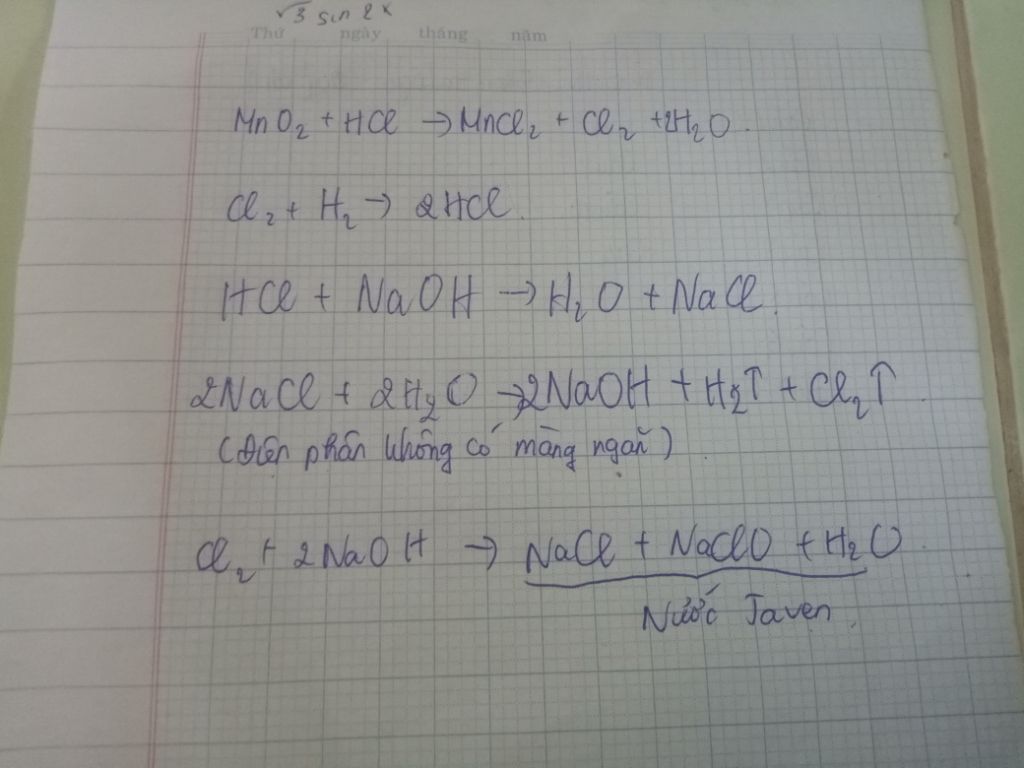 √3 sin 2x
Thứ ngày tháng năm
MnO₂ + HCl → MnCl₂ + Cl₂ + 2H₂O.
Cl₂ + H₂ → 2HCl.
HCl + NaOH → H₂O + NaCl.
2NaCl + 2H₂O → 2NaOH + H₂↑ + Cl₂↑.
(Điện phân không có màng ngăn).
Cl₂ + 2NaOH → NaCl + NaClO + H₂O.
Nước Javen.